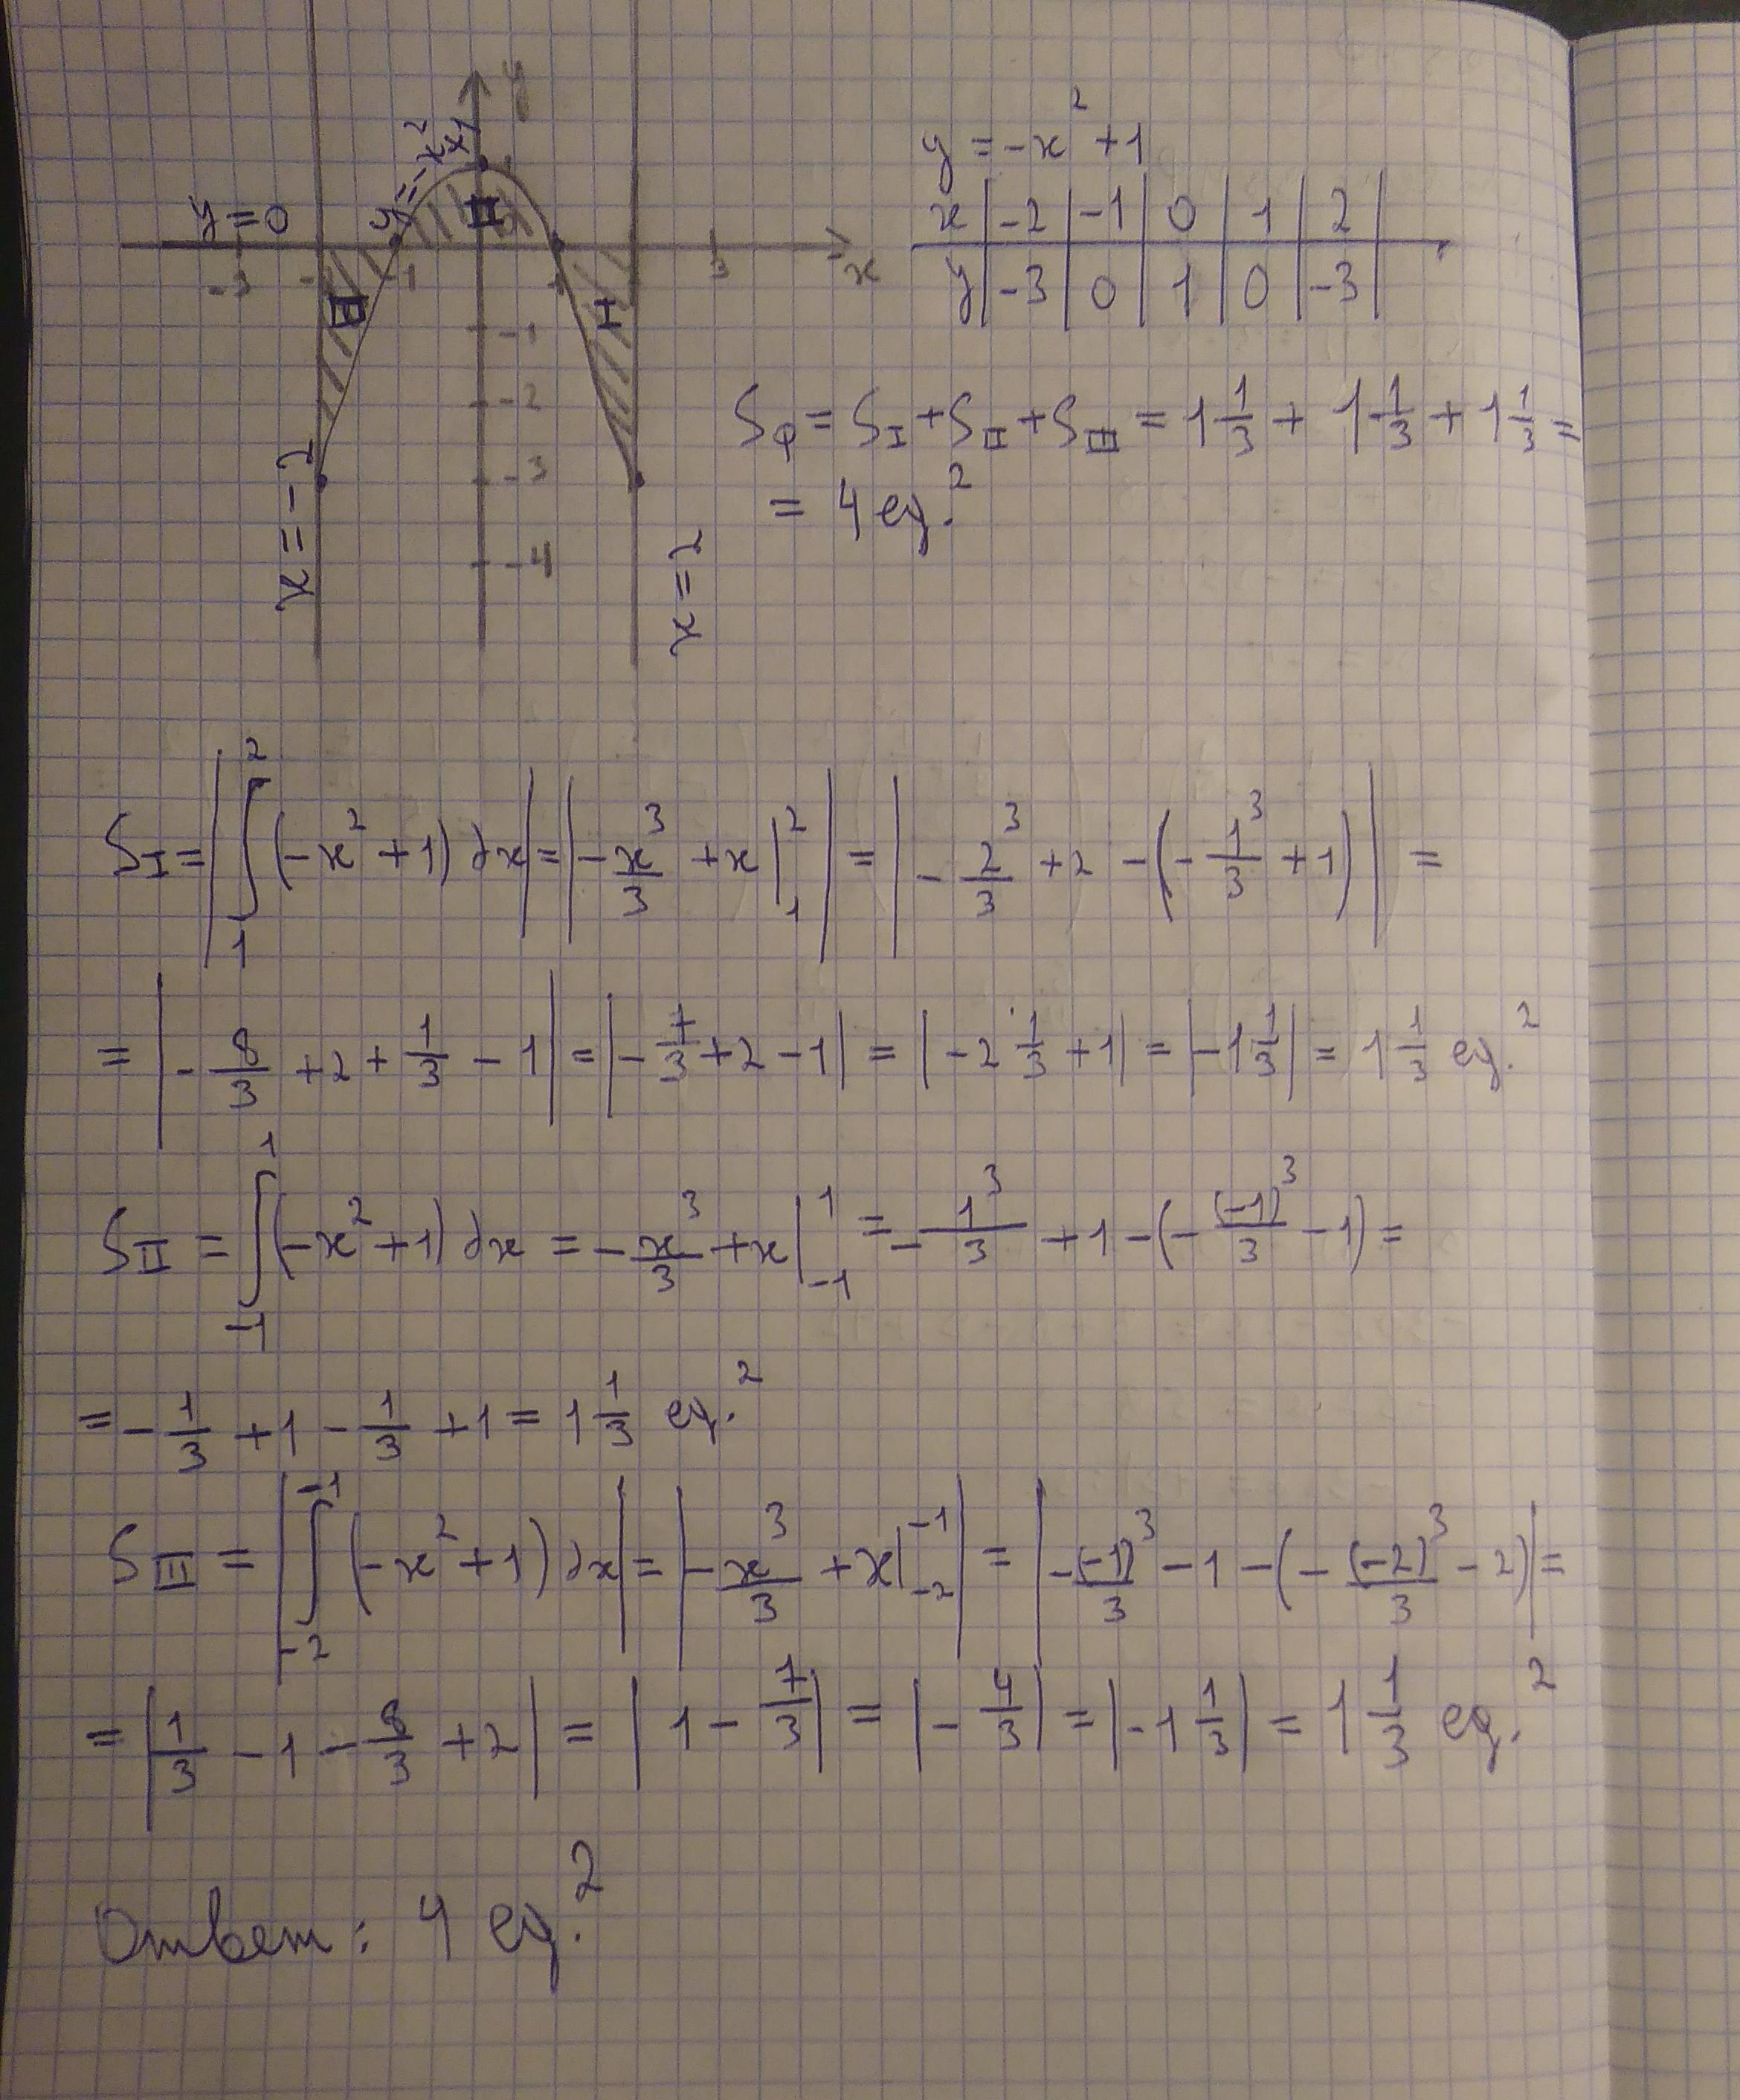 y
y = -x² + 1
y = -x² + 1
x | -2 | -1 | 0 | 1 | 2 |
y | -3 | 0 | 1 | 0 | -3 |
y = 0
II
1
-3 -1 1 3 x
III I
-1
-2
-3
-4
x = -2
x = 2
Sф = S_I + S_II + S_III = 1 1/3 + 1 1/3 + 1 1/3 =
= 4 ед.²
S_I = |∫₁² (-x² + 1) dx| = |-x³/3 + x |₁²| = |-2³/3 + 2 - (-1³/3 + 1)| =
= |-8/3 + 2 + 1/3 - 1| = |-7/3 + 2 - 1| = |-2 1/3 + 1| = |-1 1/3| = 1 1/3 ед.²
S_II = ∫₋₁¹ (-x² + 1) dx = -x³/3 + x |₋₁¹ = -1³/3 + 1 - (-(-1)³/3 - 1) =
= -1/3 + 1 - 1/3 + 1 = 1 1/3 ед.²
S_III = |∫₋₂⁻¹ (-x² + 1) dx| = |-x³/3 + x |₋₂⁻¹| = |-(-1)³/3 - 1 - (-(-2)³/3 - 2)| =
= |1/3 - 1 - 8/3 + 2| = |1 - 7/3| = |-4/3| = |-1 1/3| = 1 1/3 ед.²
Ответ: 4 ед.²